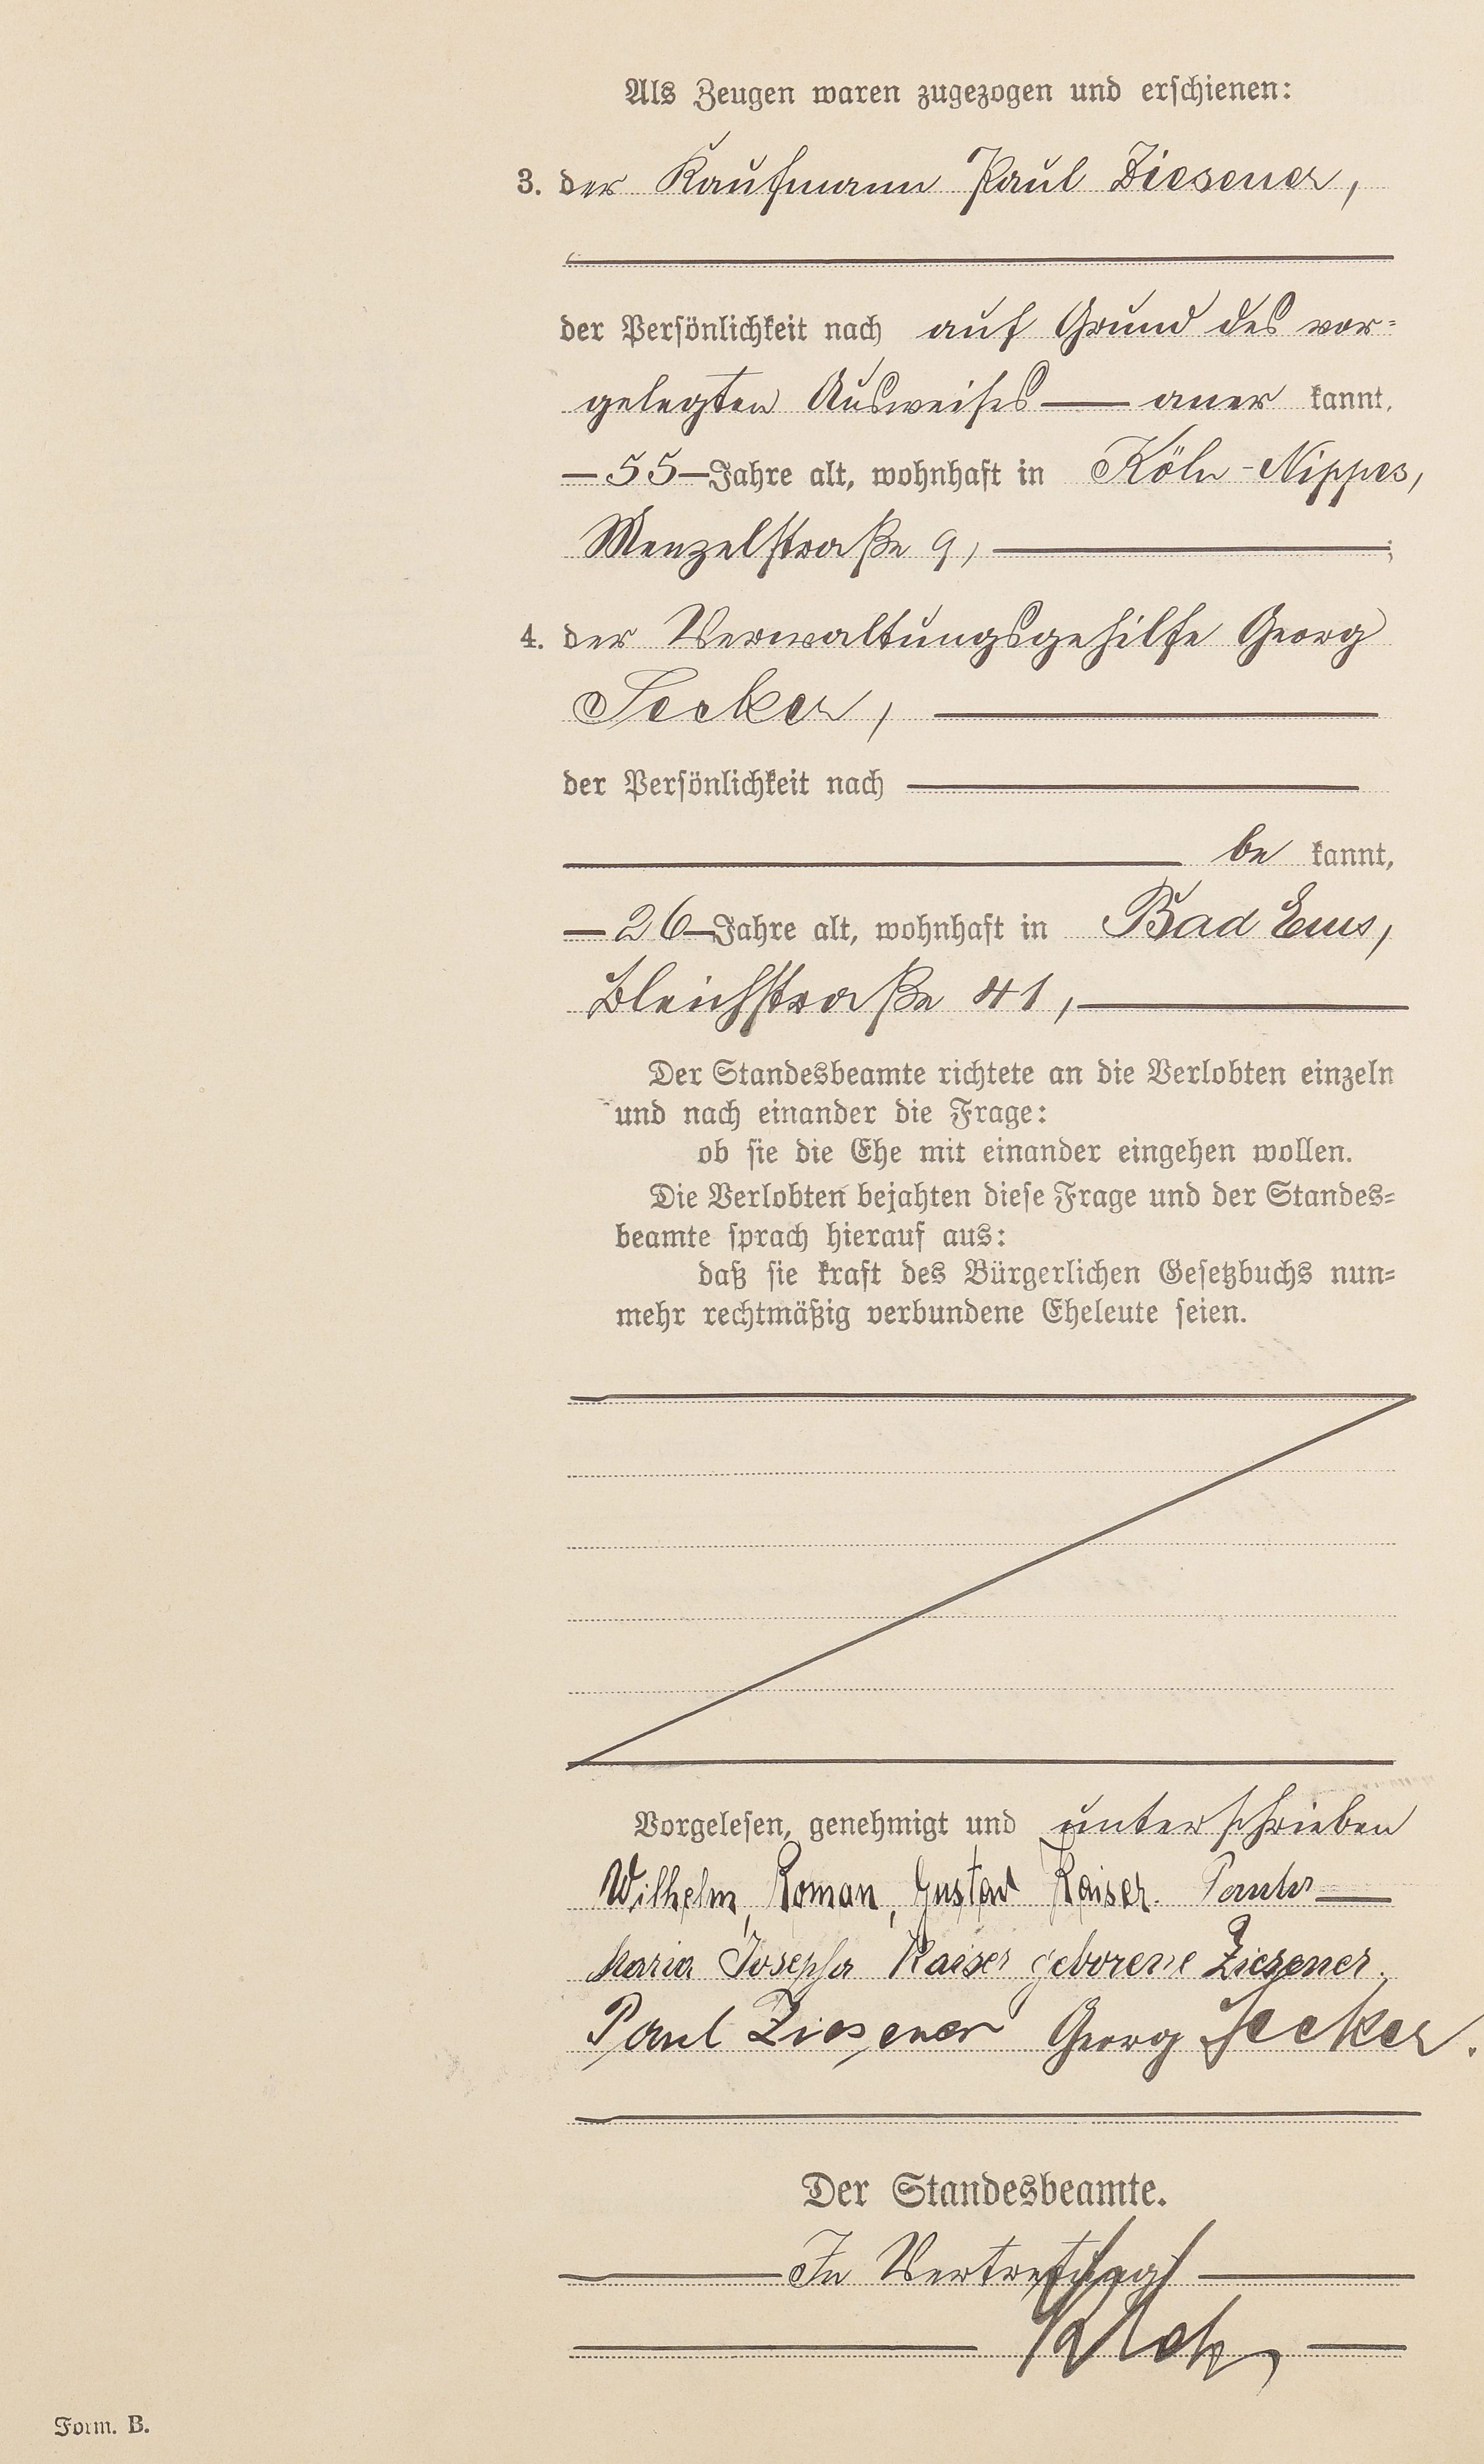 Als Zeugen waren zugezogen und erschienen:
3. der Kaufmann Paul Ziesener,
der Persönlichkeit nach auf Grund des vor=
gelegten Ausweises — aner kannt,
— 55 — Jahre alt, wohnhaft in Köln-Nippes,
Menzelstraße 9, ;
4. der Verwaltungsgehilfe Georg
Seeker,
der Persönlichkeit nach
be kannt,
— 26 — Jahre alt, wohnhaft in Bad Ems,
Bleichstraße 41,
Der Standesbeamte richtete an die Verlobten einzeln
und nach einander die Frage:
ob sie die Ehe mit einander eingehen wollen.
Die Verlobten bejahten diese Frage und der Standes=
beamte sprach hierauf aus:
daß sie kraft des Bürgerlichen Gesetzbuchs nun=
mehr rechtmäßig verbundene Eheleute seien.
Vorgelesen, genehmigt und unterschrieben
Wilhelm, Roman, Gustav Kaiser.
Maria Josepha Kaiser geborene Ziesener.
Paul Ziesener Georg Seeker.
Der Standesbeamte.
In Vertretung
Form. B.